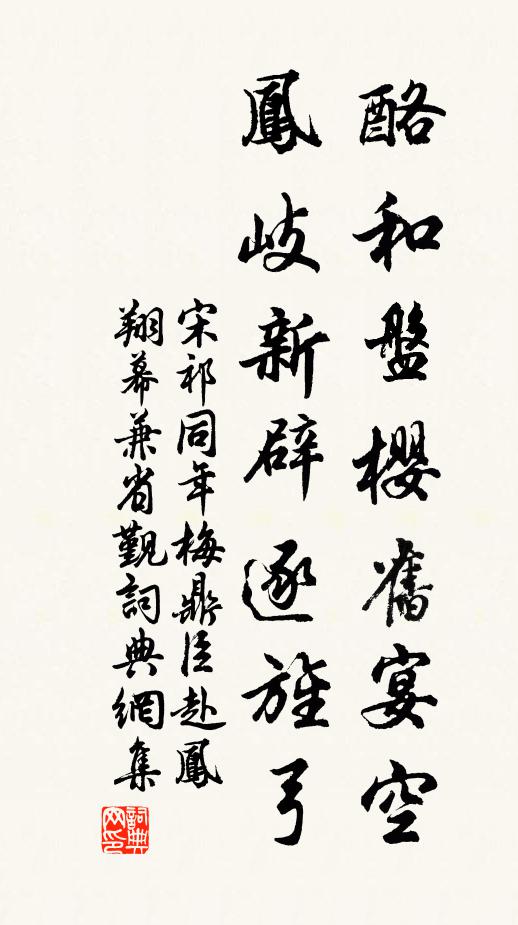 酪和盤櫻舊宴空
鳳岐新辟逐旌弓
宋祁同年梅鼎臣赴鳳
翔幕兼省觀詞典網集
詞典網印